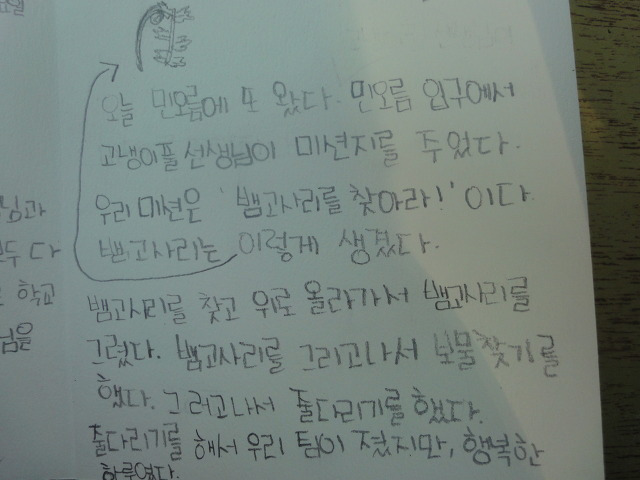 오늘 민오름에 또 왔다. 민오름 입구에서
고냉이풀 선생님이 미션지를 주었다.
우리 미션은 '뱀고사리를 찾아라!' 이다
뱀고사리는 이렇게 생겼다.
뱀고사리를 찾고 위로 올라가서 뱀고사리를
그렸다. 뱀고사리를 그리고나서 보물찾기를
했다. 그러고나서 줄다리기를 했다.
줄다리기를 해서 우리 팀이 졌지만, 행복한
하루였다.
님과
두 다
학교
님을